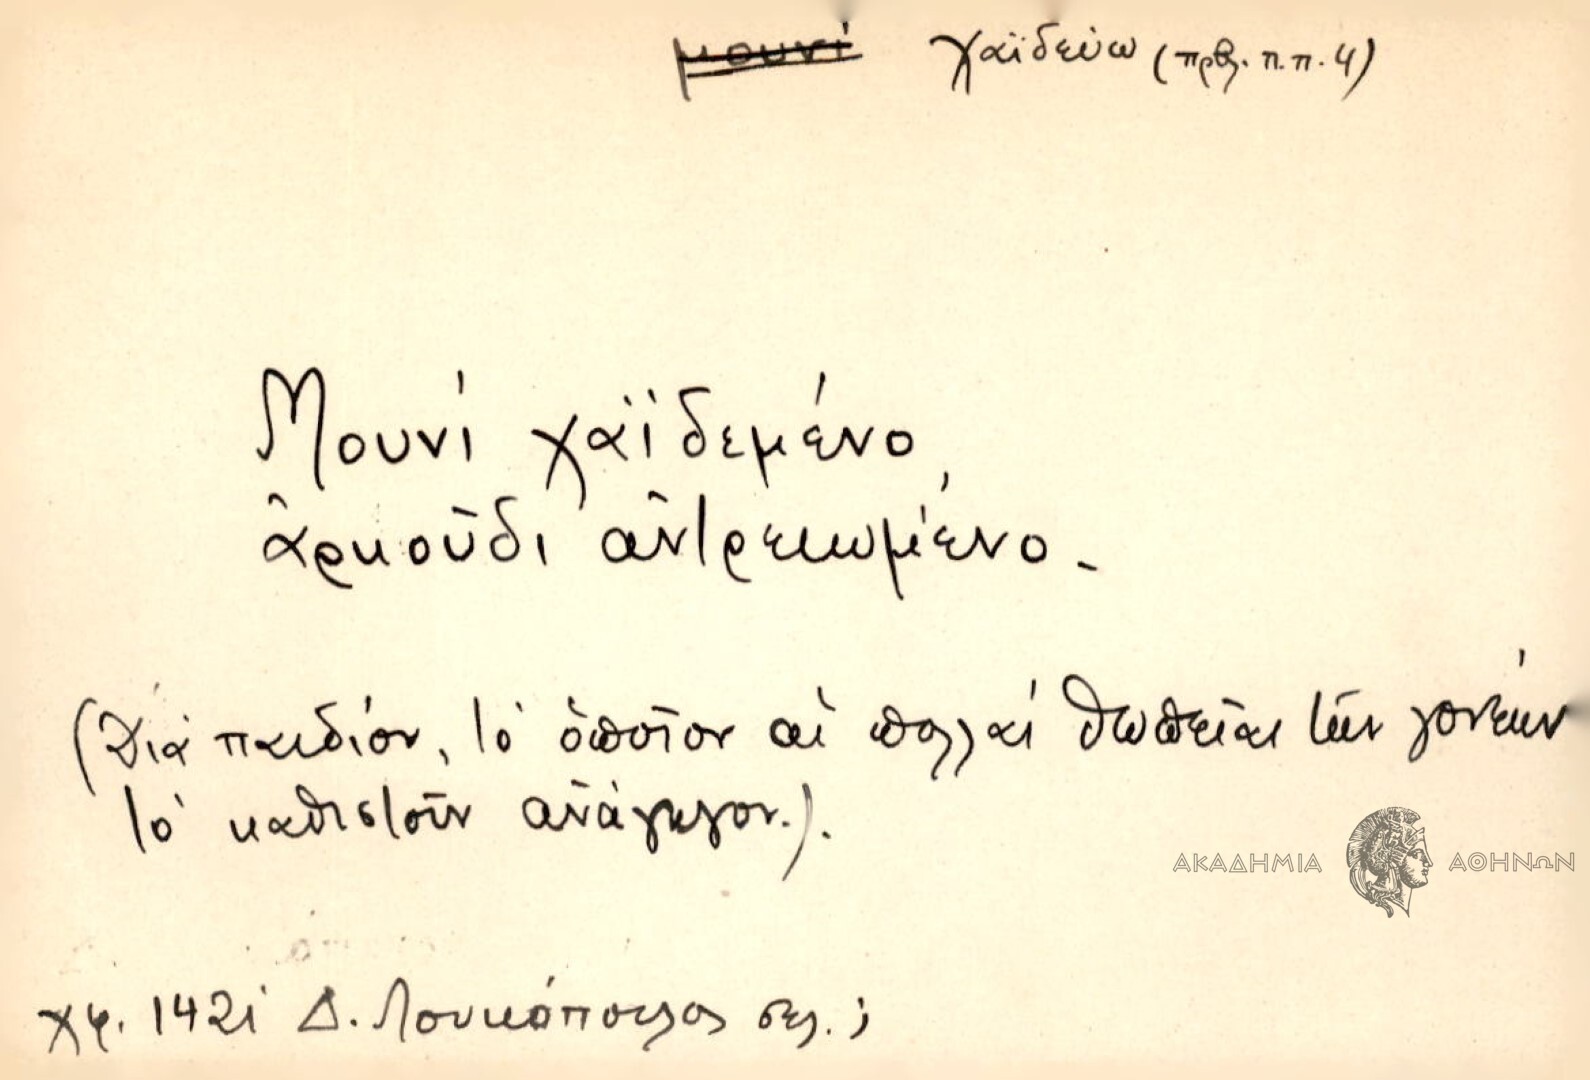 μουνί χαϊδεύω (πρβλ. π.π. 4)
Μουνί χαϊδεμένο,
ἀρκοῦδι ἀντρειωμένο.
(Διὰ παιδίον, τὸ ὁποῖον αἱ πολλαί θωπεῖαι τῶν γονέων
τὸ καθιστοῦν ἀνάγωγον.).
ΑΚΑΔΗΜΙΑ ΑΘΗΝΩΝ
χφ. 1421 Δ. Λουκόπουλος σελ. ;